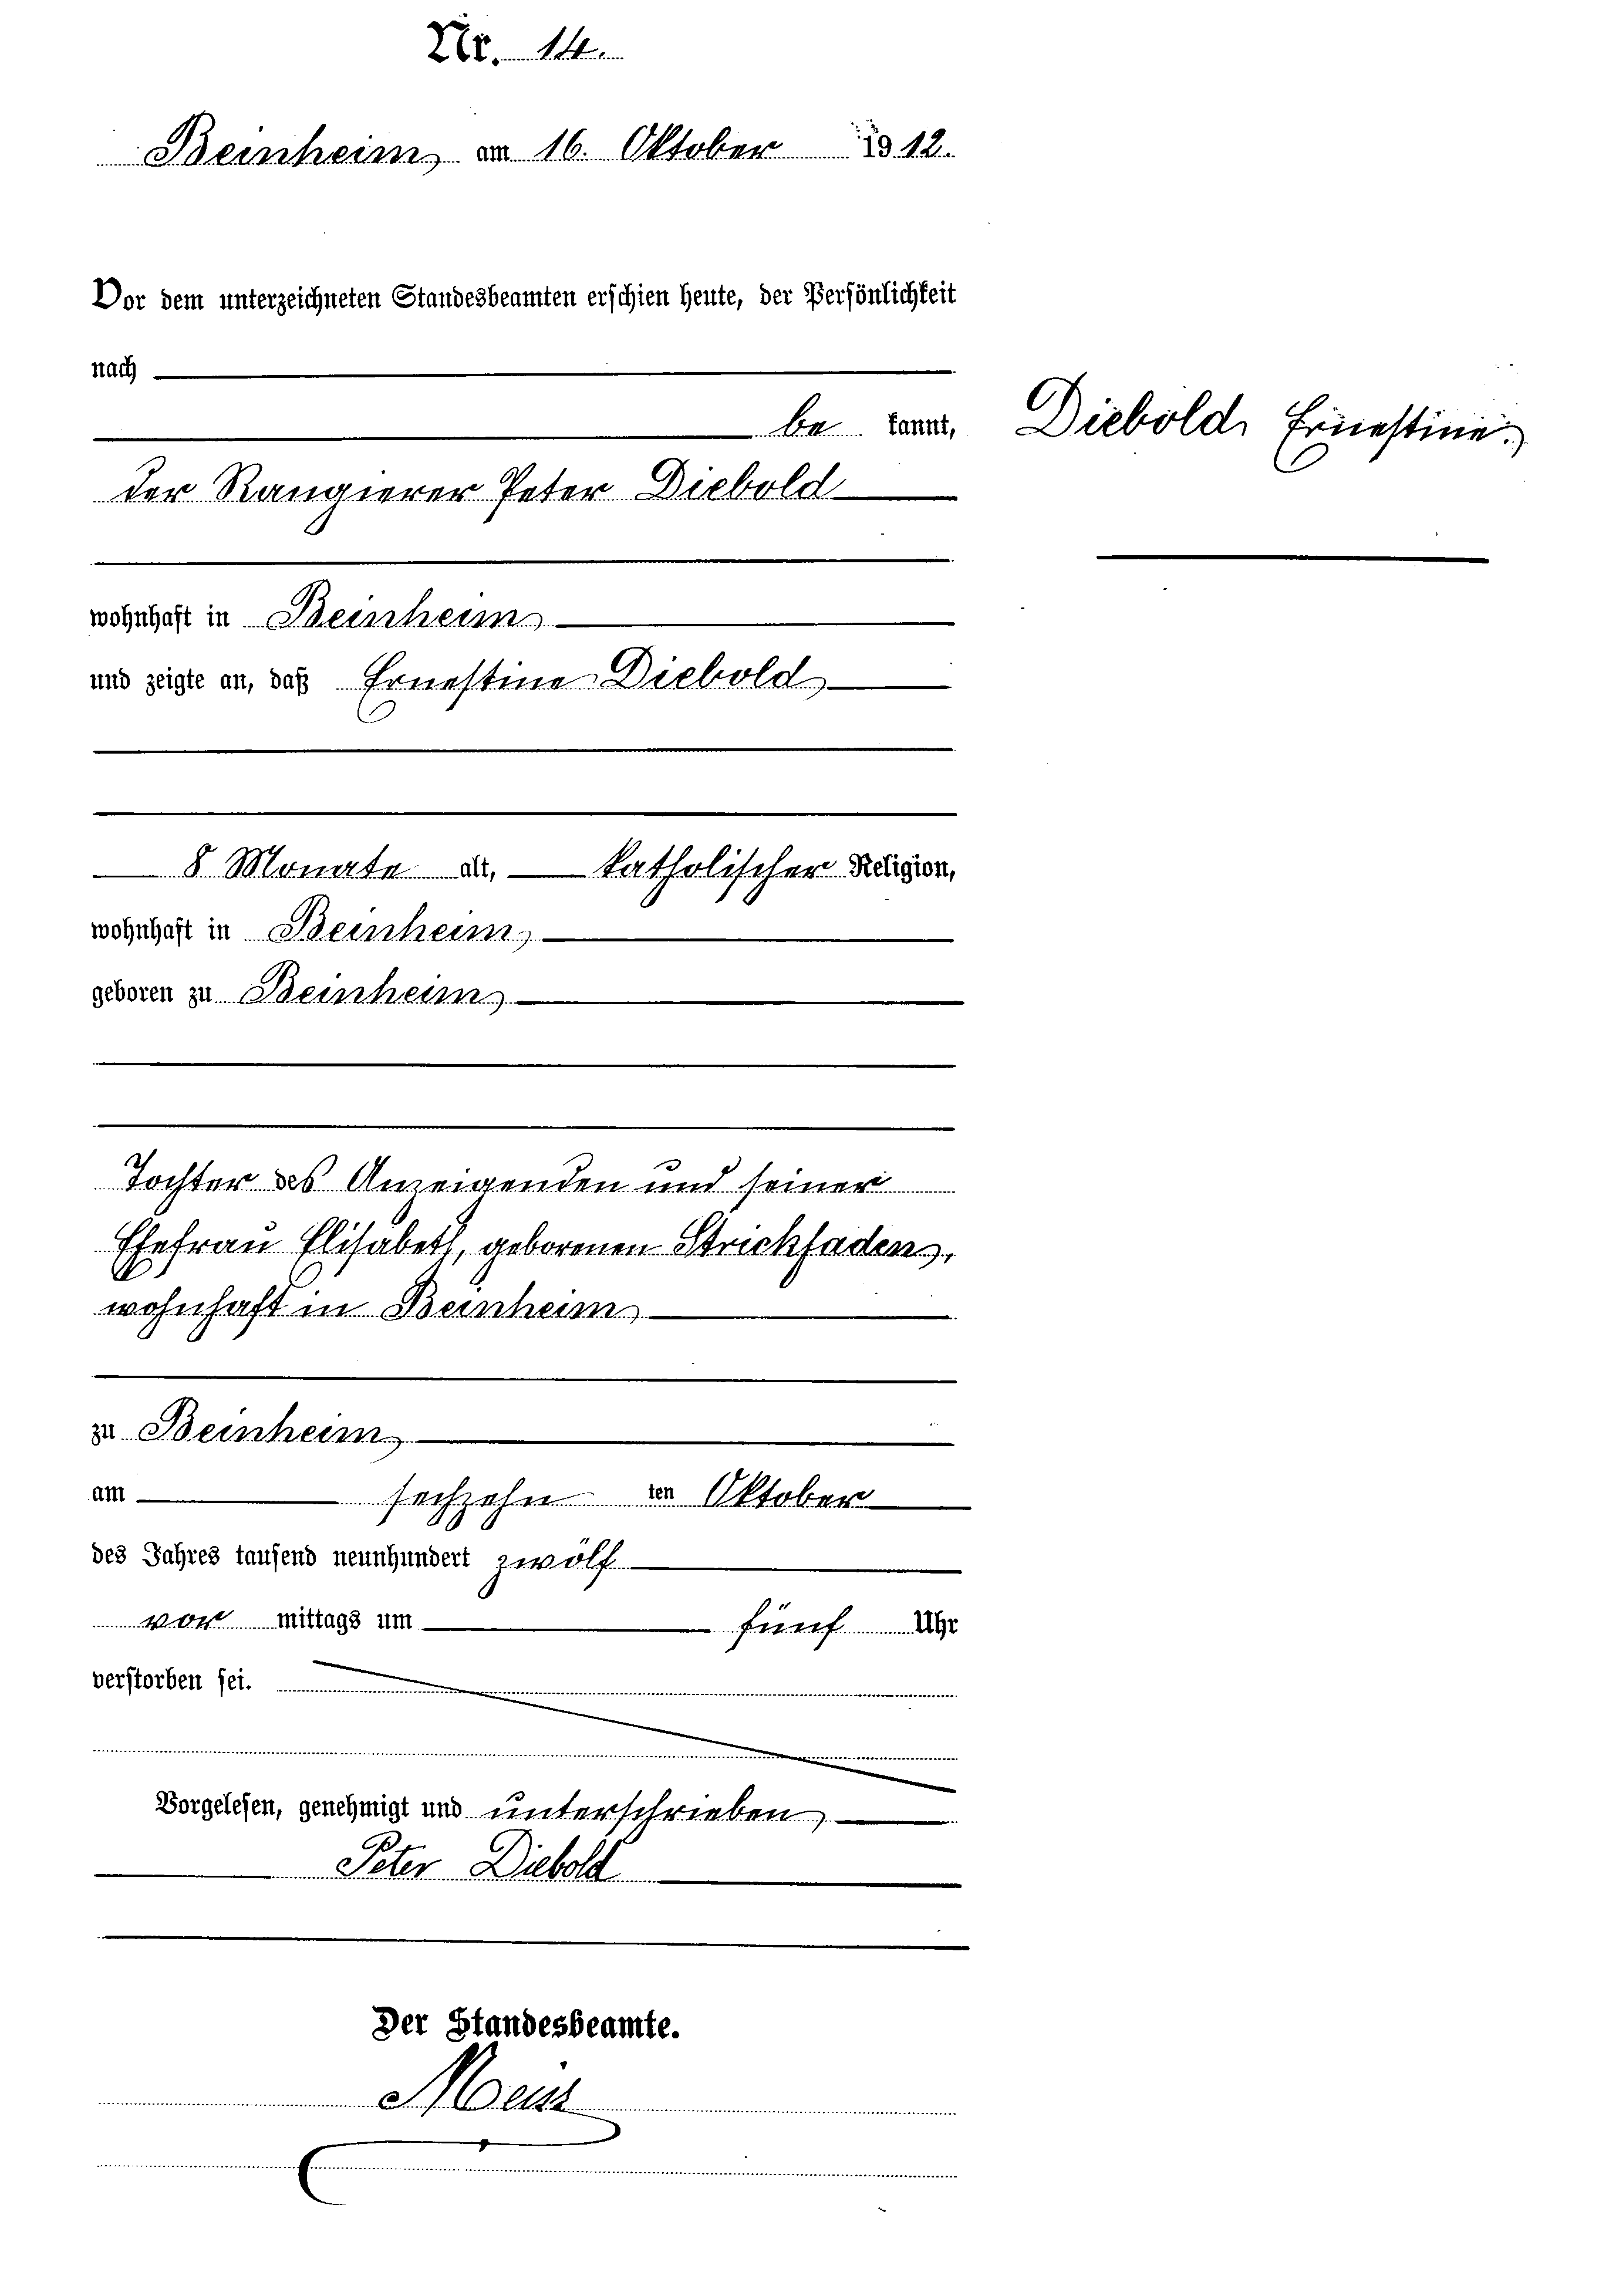 Nr. 14.
Beinheim, am 16. Oktober 1912.
Vor dem unterzeichneten Standesbeamten erschien heute, der Persönlichkeit
nach
be kannt,
Diebold, Ernestine.
der Rangierer Peter Diebold
wohnhaft in Beinheim,
und zeigte an, daß Ernestine Diebold,
8 Monate alt, katholischer Religion,
wohnhaft in Beinheim,
geboren zu Beinheim,
Tochter des Anzeigenden und seiner
Ehefrau Elisabeth, geborenen Strickfaden,
wohnhaft in Beinheim,
zu Beinheim,
am sechzehn ten Oktober
des Jahres tausend neunhundert zwölf
vor mittags um fünf Uhr
verstorben sei.
Vorgelesen, genehmigt und unterschrieben,
Peter Diebold
Der Standesbeamte.